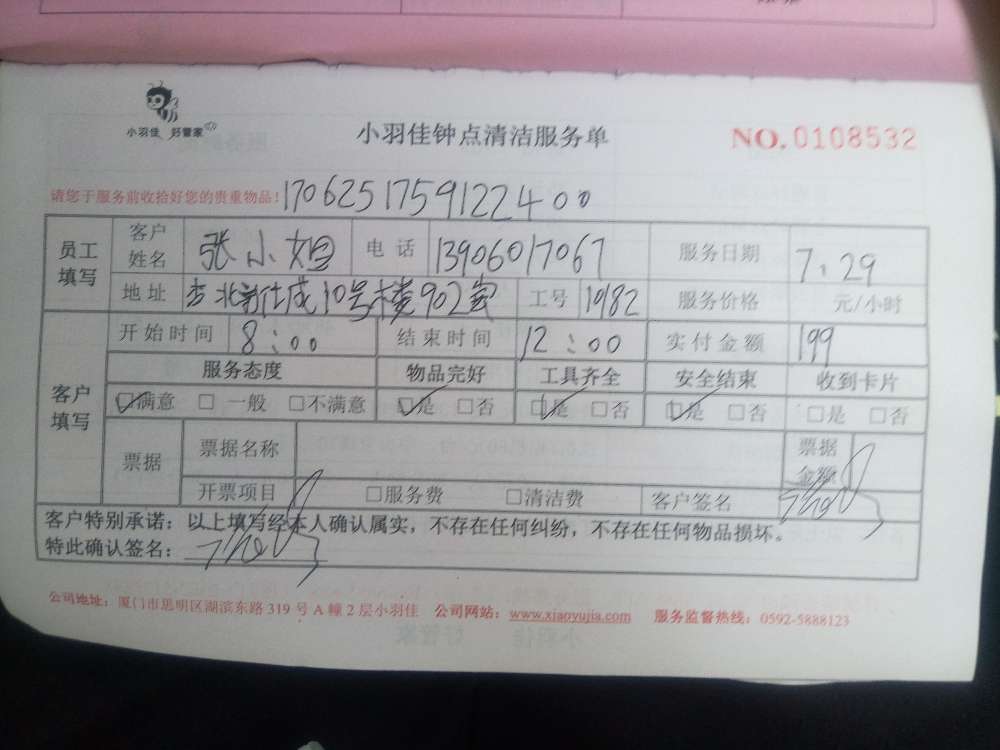 小羽佳 好管家
小羽佳钟点清洁服务单
NO.0108532
请您于服务前收拾好您的贵重物品!
170625175912240 0
员工填写 客户姓名 张小姐 电话 13906017067 服务日期 7.29
地址 北新仕成10号楼902室 工号 10182 服务价格 元/小时
客户填写 开始时间 8:00 结束时间 12:00 实付金额 199
服务态度 物品完好 工具齐全 安全结束 收到卡片
☑满意 □一般 □不满意 ☑是 □否 ☑是 □否 ☑是 □否 □是 □否
票据 票据名称 票据金额
开票项目 □服务费 □清洁费 客户签名
客户特别承诺：以上填写经本人确认属实，不存在任何纠纷，不存在任何物品损坏。
特此确认签名：
公司地址：厦门市思明区湖滨东路 319 号 A 幢 2 层小羽佳 公司网站：www.xiaoyujia.com 服务监督热线：0592-5888123